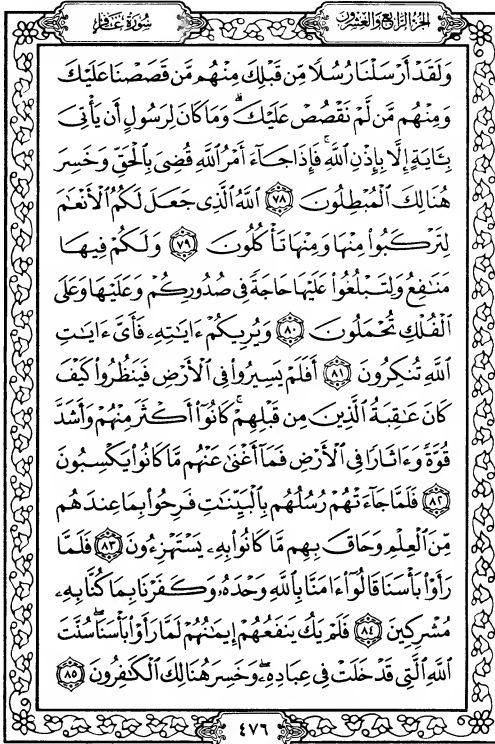 سُورَةُ غَافِرٍ
الجُزْءُ الرَّابِعُ وَالعِشْرُونَ
وَلَقَدْ أَرْسَلْنَا رُسُلًا مِّن قَبْلِكَ مِنْهُم مَّن قَصَصْنَا عَلَيْكَ
وَمِنْهُم مَّن لَّمْ نَقْصُصْ عَلَيْكَۗ وَمَا كَانَ لِرَسُولٍ أَن يَأْتِىَ
بِـَٔايَةٍ إِلَّا بِإِذْنِ ٱللَّهِۚ فَإِذَا جَآءَ أَمْرُ ٱللَّهِ قُضِىَ بِٱلْحَقِّ وَخَسِرَ
هُنَالِكَ ٱلْمُبْطِلُونَ ٧٨ ٱللَّهُ ٱلَّذِى جَعَلَ لَكُمُ ٱلْأَنْعَٰمَ
لِتَرْكَبُوا۟ مِنْهَا وَمِنْهَا تَأْكُلُونَ ٧٩ وَلَكُمْ فِيهَا
مَنَٰفِعُ وَلِتَبْلُغُوا۟ عَلَيْهَا حَاجَةً فِى صُدُورِكُمْ وَعَلَيْهَا وَعَلَى
ٱلْفُلْكِ تُحْمَلُونَ ٨٠ وَيُرِيكُمْ ءَايَٰتِهِۦ فَأَىَّ ءَايَٰتِ
ٱللَّهِ تُنكِرُونَ ٨١ أَفَلَمْ يَسِيرُوا۟ فِى ٱلْأَرْضِ فَيَنظُرُوا۟ كَيْفَ
كَانَ عَٰقِبَةُ ٱلَّذِينَ مِن قَبْلِهِمْۚ كَانُوٓا۟ أَكْثَرَ مِنْهُمْ وَأَشَدَّ
قُوَّةً وَءَاثَارًا فِى ٱلْأَرْضِ فَمَآ أَغْنَىٰ عَنْهُم مَّا كَانُوا۟ يَكْسِبُونَ
٨٢ فَلَمَّا جَآءَتْهُمْ رُسُلُهُم بِٱلْبَيِّنَٰتِ فَرِحُوا۟ بِمَا عِندَهُم
مِّنَ ٱلْعِلْمِ وَحَاقَ بِهِم مَّا كَانُوا۟ بِهِۦ يَسْتَهْزِءُونَ ٨٣ فَلَمَّا
رَأَوْا۟ بَأْسَنَا قَالُوٓا۟ ءَامَنَّا بِٱللَّهِ وَحْدَهُۥ وَكَفَرْنَا بِمَا كُنَّا بِهِۦ
مُشْرِكِينَ ٨٤ فَلَمْ يَكُ يَنفَعُهُمْ إِيمَٰنُهُمْ لَمَّا رَأَوْا۟ بَأْسَنَاۖ سُنَّتَ
ٱللَّهِ ٱلَّتِى قَدْ خَلَتْ فِى عِبَادِهِۦۖ وَخَسِرَ هُنَالِكَ ٱلْكَٰفِرُونَ ٨٥
٤٧٦